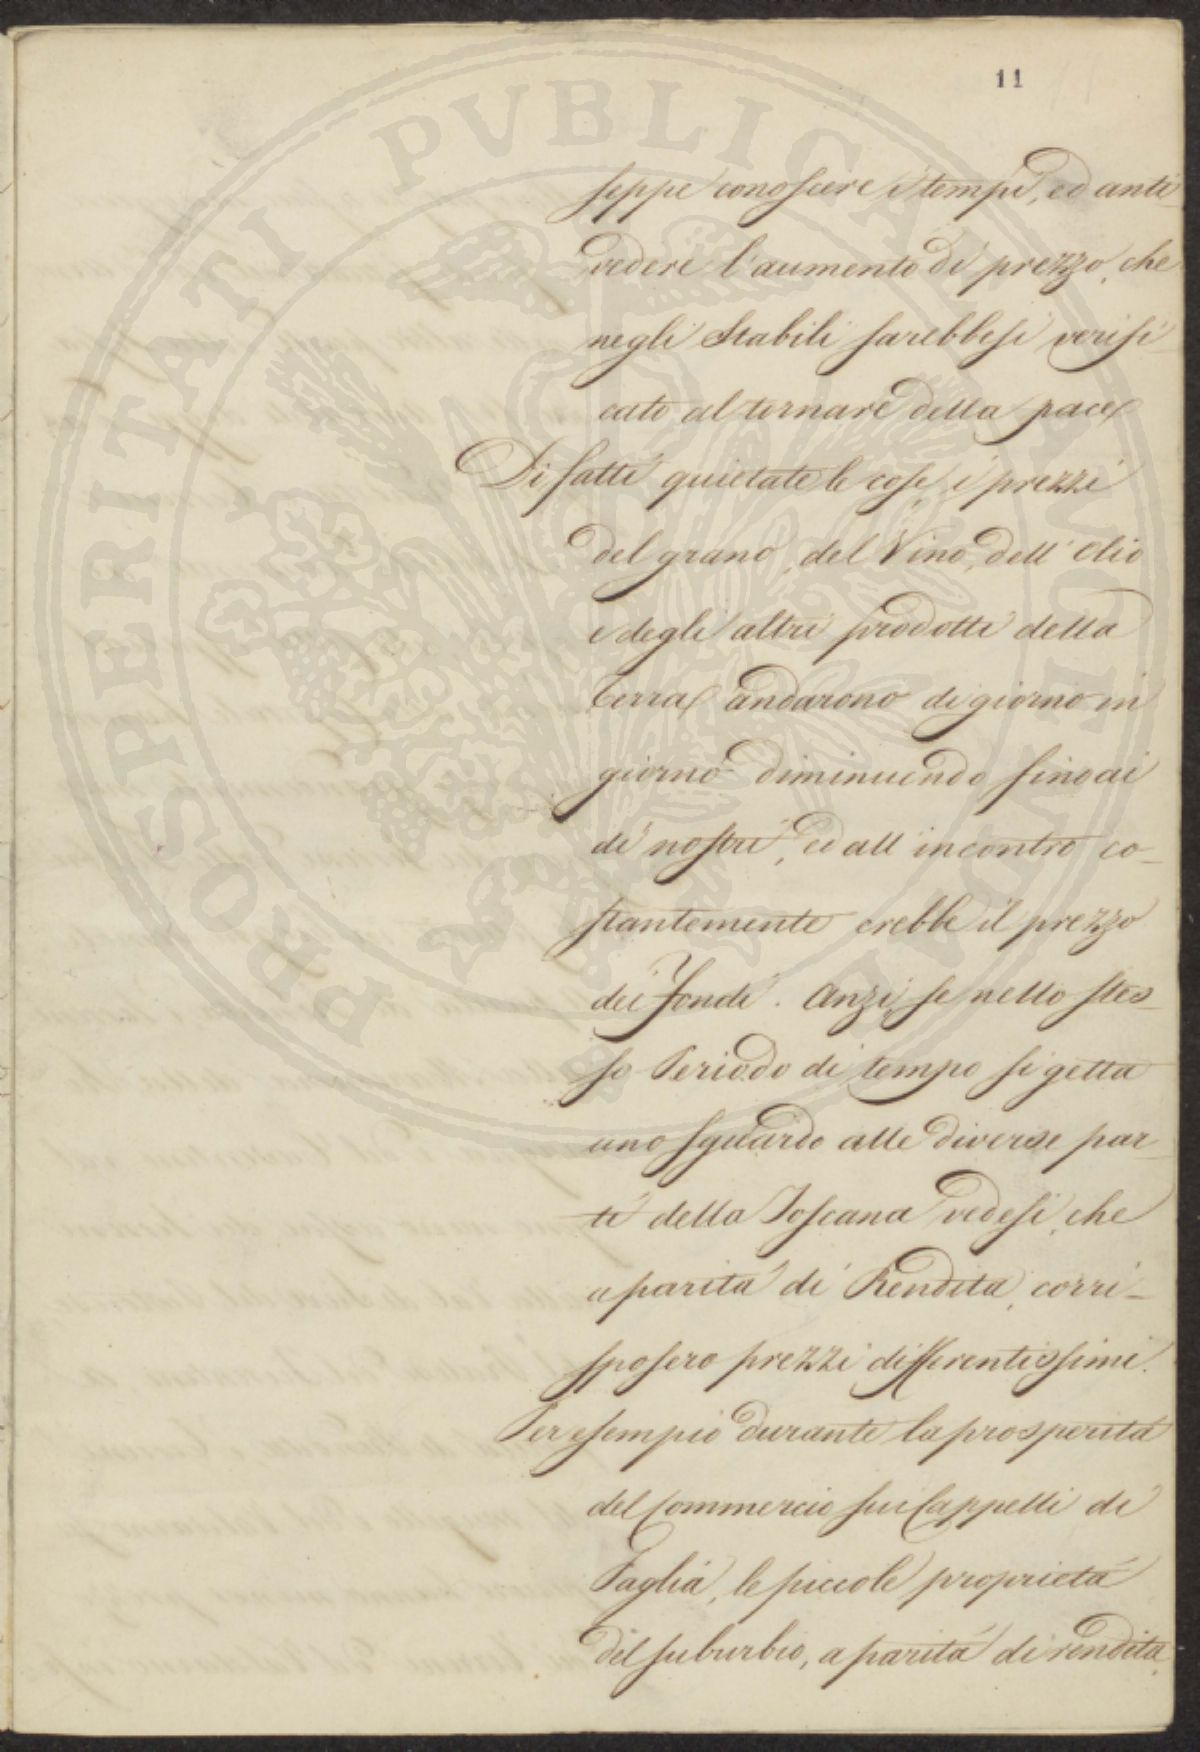 11
seppe conoscere i tempi, ed anti-
vedere l'aumento di prezzo, che
negli Stabili sarebbesi verifi-
cato al tornare della pace.
Di fatti quietate le cose, i prezzi
del grano, del Vino, dell'Olio
e degli altri prodotti della
terra, andarono di giorno in
giorno diminuendo fino ai
dì nostri, ed all'incontro co-
stantemente crebbe il prezzo
dei Fondi. Anzi, se nello stes-
so Periodo di tempo si getta
uno sguardo alle diverse par-
ti della Toscana vedesi, che
a parità di Rendita, corri-
sposero prezzi differentissimi.
Per esempio durante la prosperità
del Commercio sui Cappelli di
Paglia, le piccole proprietà
del suburbio, a parità di rendita,
PROSPERITATI PVBLICAE AVGENDAE